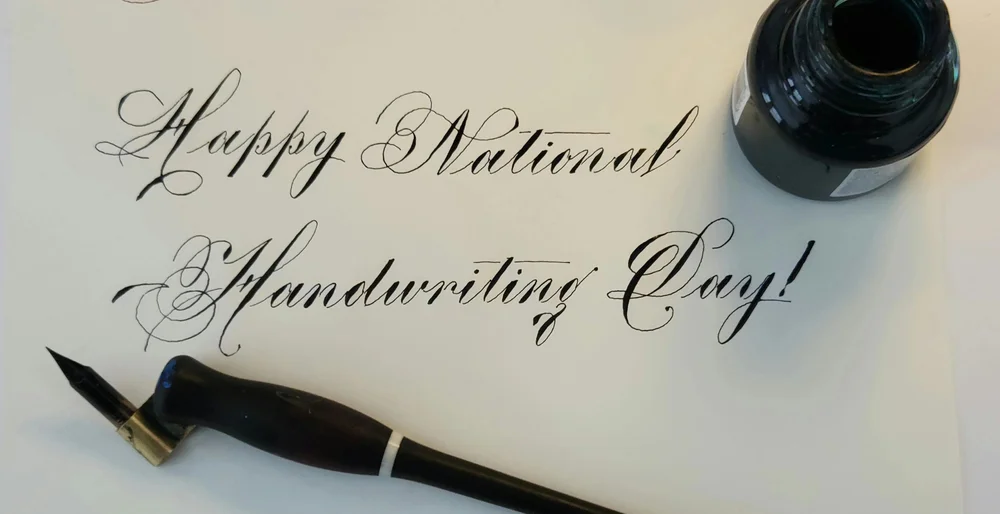 Happy National
Handwriting Day!